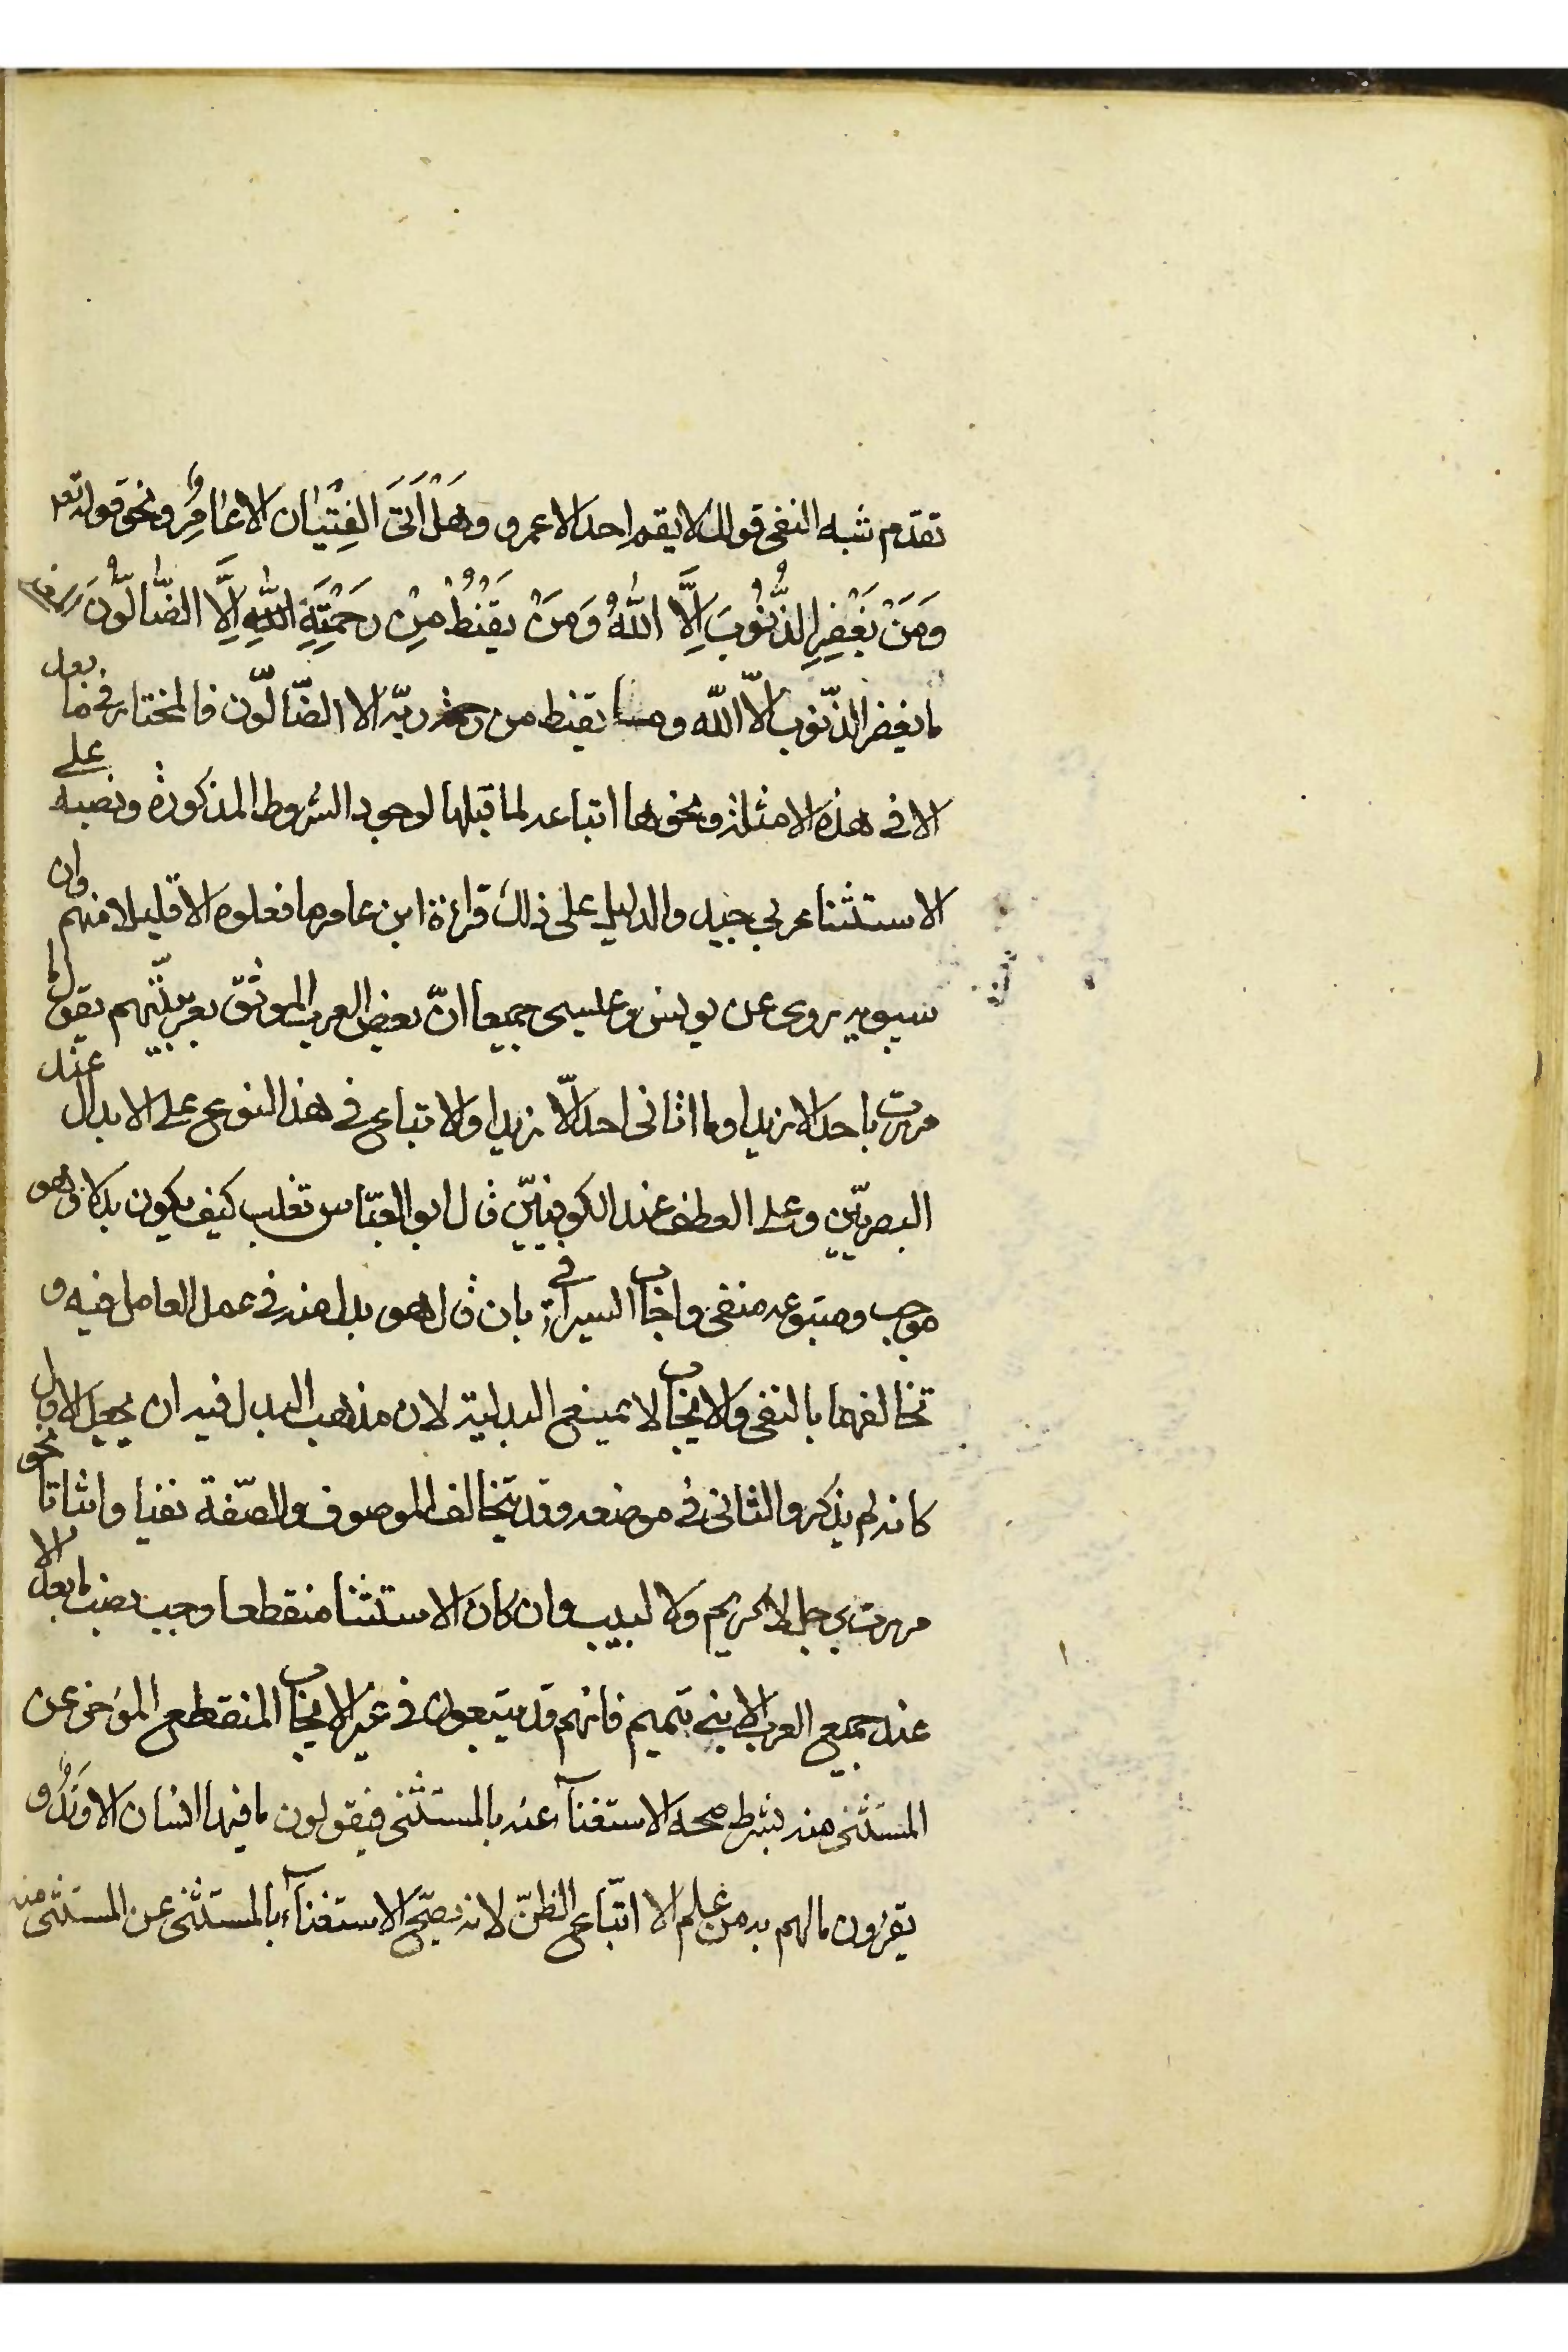 تقدم شبه النفى قولك لا يقم احد الا عمرو وهَلْ اَتَى الفِتْيَان الا عَامِرُ ونحو قوله تعه
وَمَنْ يَغْفِرِ الذُّنُوبَ اِلَّا اللّٰهُ وَمَنْ يَقْنُطُ مِنْ رَحْمَتِهِ اللّٰهِ اِلَّا الضَّالُّونَ
ما يغفر الذّنوب الاّ اللّه وما يقنط من رحمة ربّه الا الضّالّون فالمختار فى ما بعد
الا فى هذه الامثلة ونحوها اتباعه لما قبلها لوجود الشروط المذكورة ونصبه على
الاستثنا عربي جيد والدليل على ذلك قراءة ابن عامر ما فعلوه الا قليلا منهم وان
سيبويه روى عن يونس وعليسى جميعا انّ بعض العرب الموثق بعربيّتهم يقول ما
مررت باحد الا زيدا وما اتانى احد الّا زيدا والاتباع فى هذا النوع على الابدال عند
البصريّين وعلى العطف عند الكوفيّين قال ابو العبّاس ثعلب كيف يكون بدلا وهو
موجب ومتبوعه منفى واجاب السيرافى بان قال هو بدل منه فى عمل العامل فيه و
تخالفهما بالنفى والايجاب لا يمنع البدلية لان مذهب البدل فيه ان يجعل الاول
كانه لم يذكر والثانى فى موضعه وقد يتخالف الموصوف والصّفة نفيا واثباتا نحو
مررت برجل لا كريم ولا لبيب وان كان الاستثنا منقطعا وجب نصب ما بعد الا
عند جميع العرب الا بنى تميم فانهم قد يتبعون فى غير الايجاب المنقطع المؤخر عن
المستثنى منه بشرط صحه الاستغناء عنه بالمستثنى فيقولون ما فيها انسان الا وَتَدُ و
يقرؤن ما لهم به من علم الا اتّباع الظنّ لانه يصحّ الاستغناء بالمستثنى عن المستثنى منه